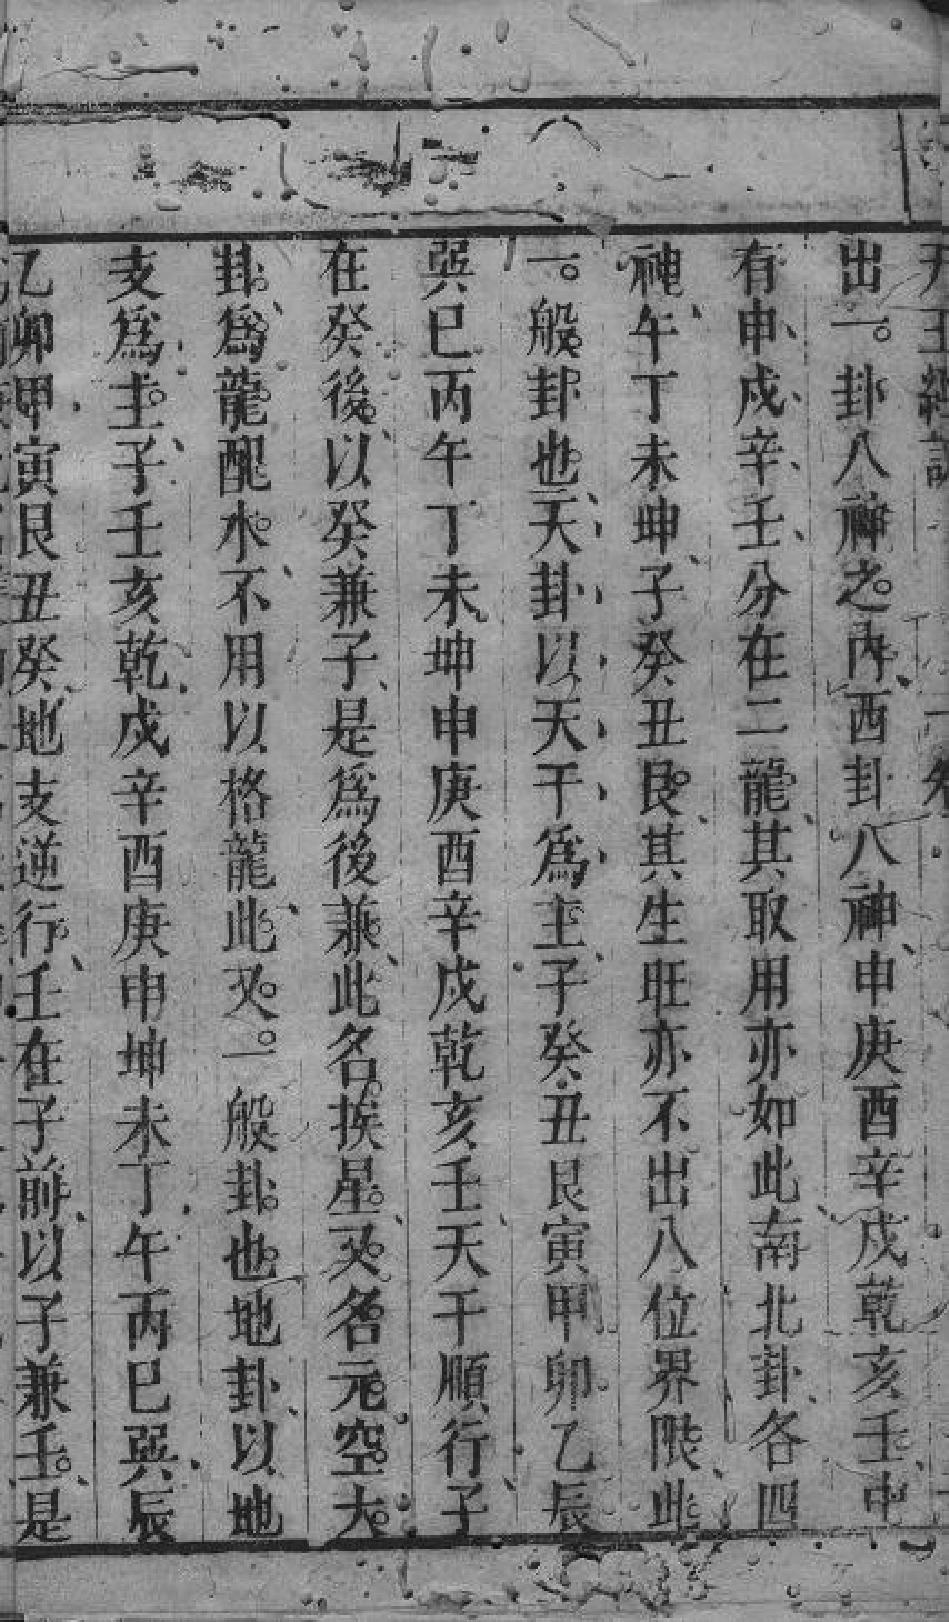 出一卦八神之內西卦八神申庚酉辛戌乾亥壬中
有申戌辛壬分在二龍其取用亦如此南北卦各四
神午丁未坤子癸丑艮其生旺亦不出八位界限此
一般卦也天卦以天干爲主子癸丑艮寅甲卯乙辰
巽巳丙午丁未坤申庚酉辛戌乾亥壬天干順行子
在癸後以癸兼子是爲後兼此名挨星又名元空大
卦爲龍配水不用以格龍此又一般卦也地卦以地
支爲主子壬亥乾戌辛酉庚申坤未丁午丙巳巽辰
乙卯甲寅艮丑癸地支逆行壬在子前以子兼壬是